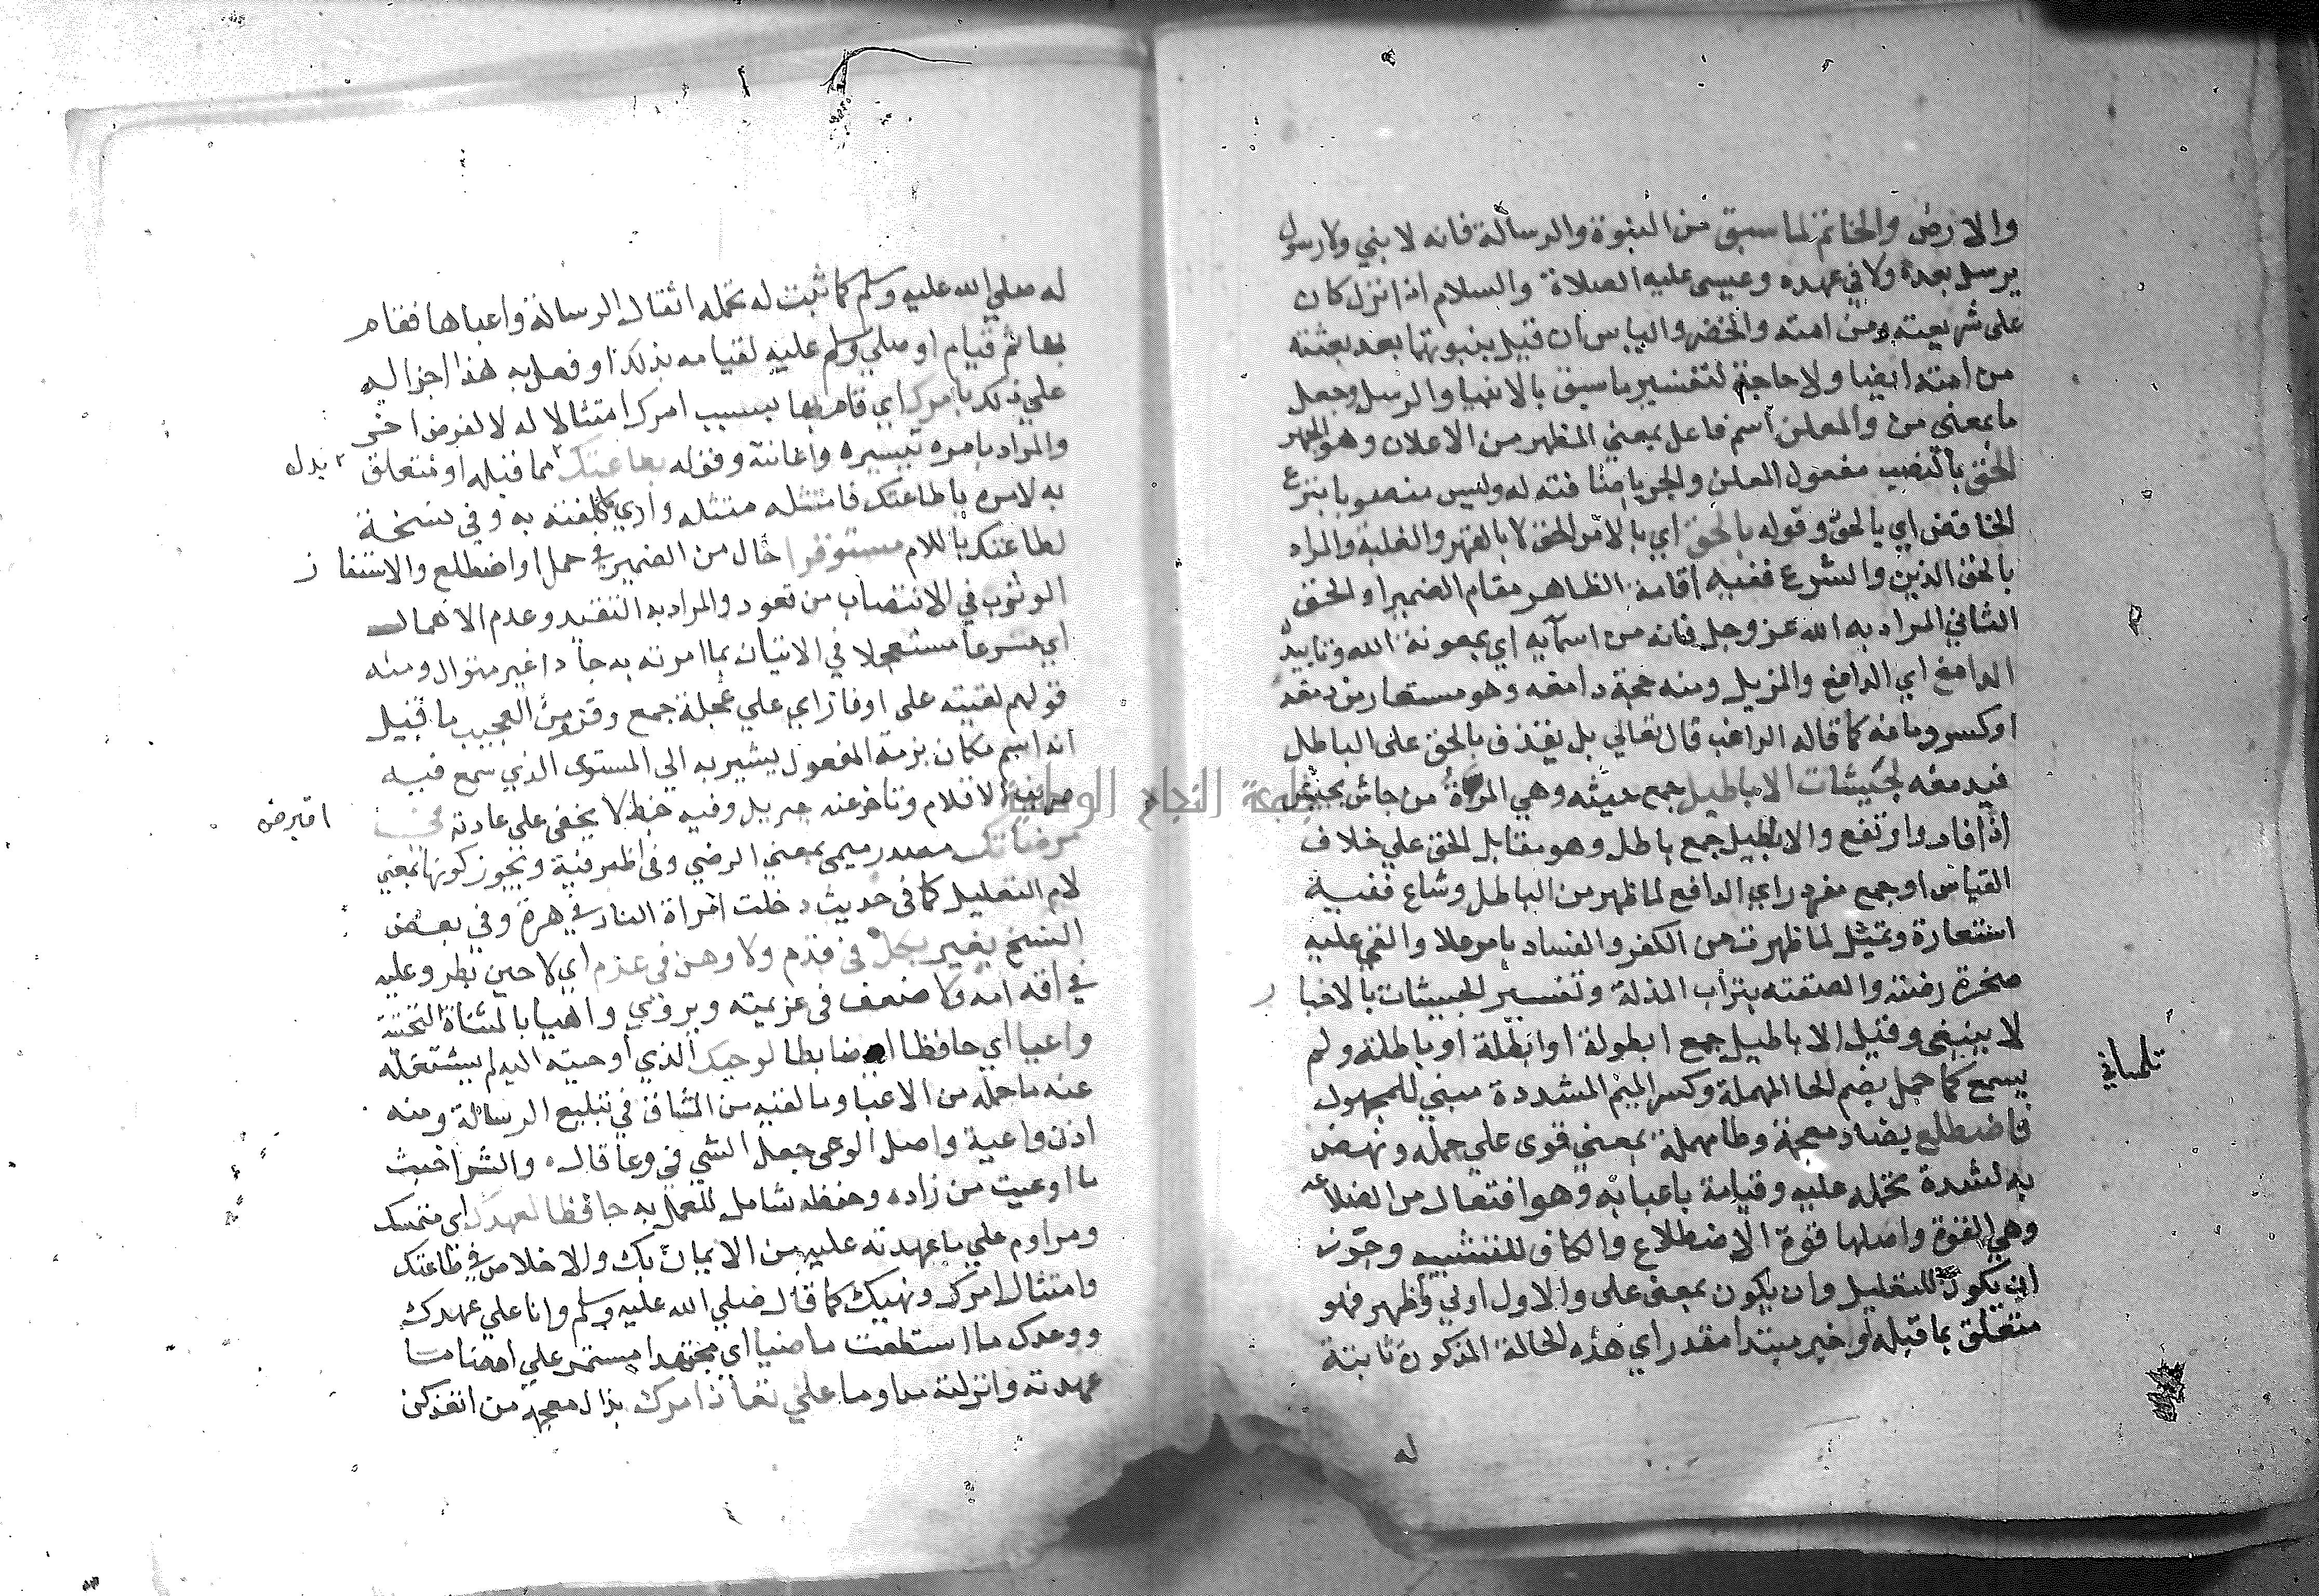 والارض والخاتم لما سبق من النبوة والرسالة فانه لا نبي ولا رسول
يرسل بعده ولا في عهده وعيسى عليه الصلاة والسلام اذا نزل كان
على شريعته ومن امته والخضر والياس ان قيل بنبوتهما بعد بعثته
من امته ايضا ولا حاجة لتفسير ما سبق بالانبيا والرسل وجعل
ما بمعني من والمعلن اسم فاعل بمعني المظهر من الاعلان وهو الجهر
الحق بالنصب مفعول المعلن والجر باضافته له وليس منصوبا بنزع
الخافض اي بالحق وقوله بالحق اي بالامر الحق لا بالقهر والغلبة والمراد
بالحق الدين والشرع ففيه اقامة الظاهر مقام الضمير او الحق
الثاني المراد به الله عز وجل فانه من اسمآيه اي بمعونة الله وتاييده
الدامغ اي الدافع والمزيل ومنه حجة دامغه وهو مستعار من دمغه
اوكسر دماغه كما قاله الراغب قال تعالي بل نقذف بالحق على الباطل
فيدمغه لجيشات الاباطيل جمع جيشه وهي المرة من جاش يجيش
اذا فار وارتفع والاباطيل جمع باطل وهو مقابل الحق علي خلاف
القياس او جمع مفرد راي الدافع لما ظهر من الباطل وشاع ففيه
استعارة وتمثيل لما ظهر من الكفر والفساد بامر علا والقي عليه
صخرة رضته والصقته بتراب المذلة وتفسير الجيشات بالاخبار
لا ينبغي وقيل الاباطيل جمع ابطولة او ابطلة او باطلة ولم
تلمساني
يسمع كما حمل بضم الحا المهملة وكسر الميم المشددة مبني للمجهول
فاضطلع بضاد معجمة وطا مهملة بمعني قوى علي حمله ونهض
به لشدة تحمله عليه وقيامه باعبائه وهو افتعال من الضلاعه
وهي القوة واصلها قوة الاضطلاع والكاف للتشبيه وجوز
ان يكون للتعليل وان يكون بمعنى على والاول اولي واظهر فهو
متعلق بما قبله او خبر مبتدا مقدر اي هذه الحالة المذكورة ثابتة
له
له صلي الله عليه وسلم كما ثبت له تحمله اثقال الرسالة واعباها فقام
بها اتم قيام او صلي وسلم عليه لقيامه بذلك او فعل به هذا جزا له
علي ذلك بامرك اي قام بها بسبب امرك امتثالا له لا لغرض اخر
والمراد بامره تيسيره واعانته وقوله بطاعتك مما قبله او متعلق
بدل
به لامره باطاعتك فامتثله وادي ما كلفته به وفي نسخة
لطاعتك باللام مستوفزا حال من الضمير في حمل او اضطلع والاستيفاز
الوثوب في الانتصاب من قعود والمراد به التقيد وعدم الاهمال
اي مسرعا مستعجلا في الاتيان بما امرته به جادا غير متوان ومنه
قولهم لقيته على اوفاز اي علي عجلة جمع وفز ومن العجيب ما قيل
انه اسم مكان بزنة المفعول يشير به الي المستوى الذي سمع فيه
صريف الاقلام وتاخر عنه جبريل وفيه خبط لا يخفى على عادته في
مرضاتك مصدر ميمي بمعني الرضي وفي ظرفية ويجوز كونها بمعني
لام التعليل كما في حديث دخلت امراة النار في هرة وفي بعض
النسخ بغير نكل في قدم ولا وهن في عزم اي لا جبن يطرو عليه
في اقدامه ولا ضعف في عزيمته ويروي واهيا بالمثناة التحتية
واعيا اي حافظا ضابطا لوحيك الذي اوحيته اليه لم يشتغله
عنه ما حمله من الاعبا وما لقيه من المشاق في تبليغ الرسالة ومنه
اذن واعية واصل الوعى جعل الشي في وعا قال والشر اخبث
ما اوعيت من زاده وحفظه شامل للعمل به حافظا لعهدك اي متمسك
ومداوم علي ما عهدته عليه من الايمان بك والاخلاص في طاعتك
وامتثال امرك ونهيك كما قال صلي الله عليه وسلم وانا علي عهدك
ووعدك ما استطعت ماضيا اي مجتهدا مستمر علي امضا ما
عهدته وانزلته علي نفاذ امرك بذال معجمة من انفذ كن